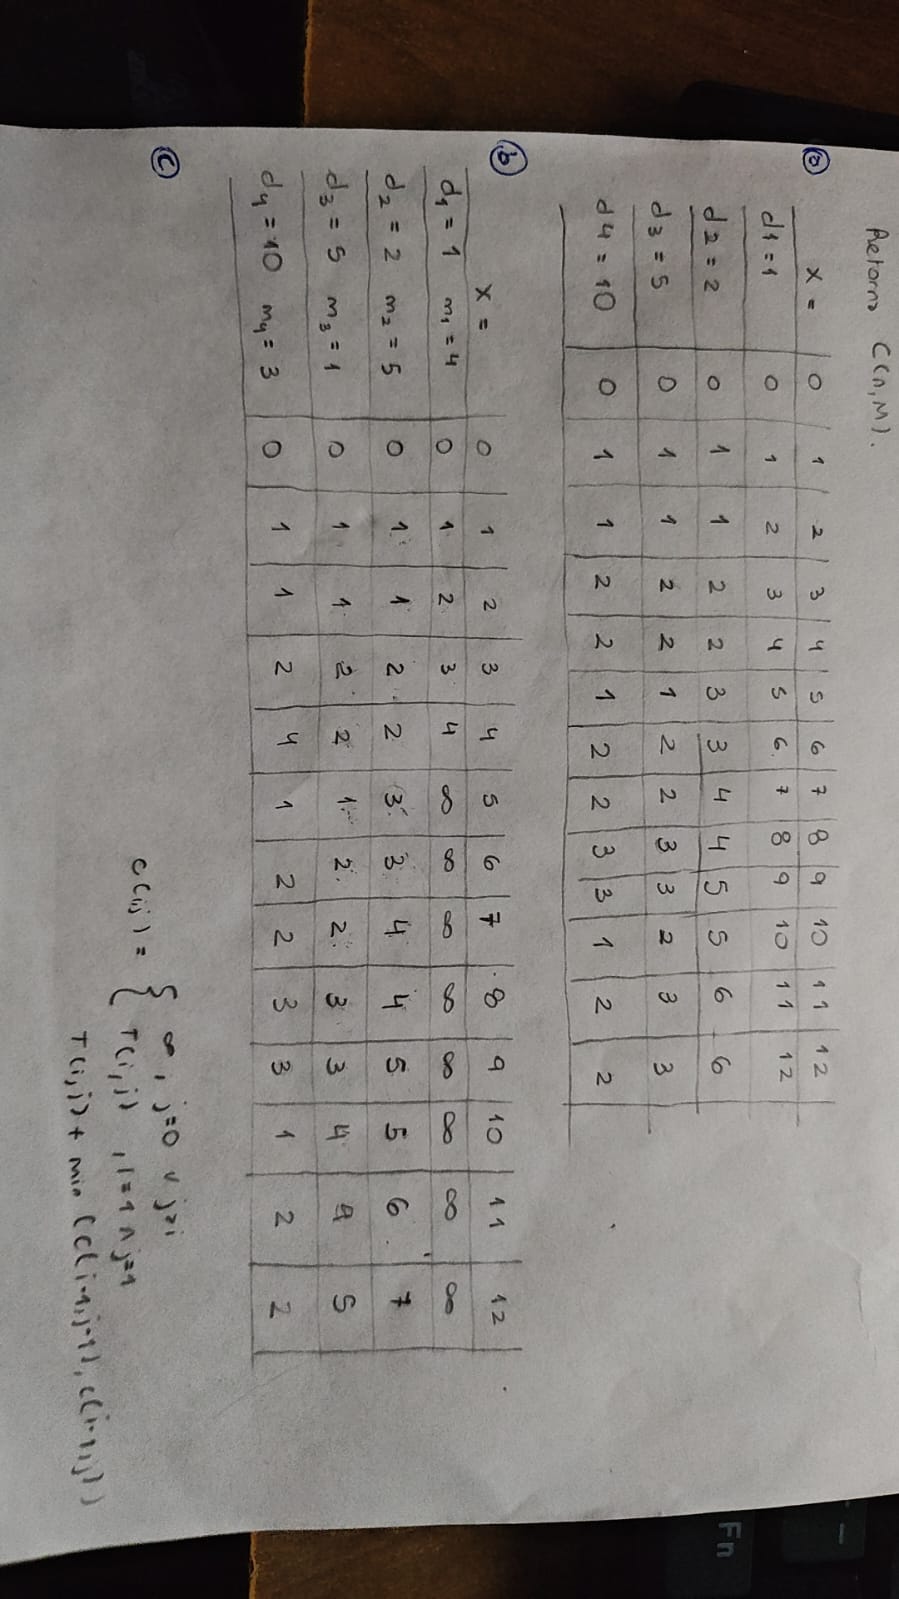 Retorno C(n,M).
ⓐ x = 0 1 2 3 4 5 6 7 8 9 10 11 12
d1=1 0 1 2 3 4 5 6. 7 8 9 10 11 12
d2=2 0 1 1 2 2 3 3 4 4 5 5 6 6
d3=5 0 1 1 2 2 1 2 2 3 3 2 3 3
d4=10 0 1 1 2 2 1 2 2 3 3 1 2 2
ⓑ x = 0 1 2 3 4 5 6 7 8 9 10 11 12
d₁ = 1 m₁ = 4 0 1 2 3 4 ∞ ∞ ∞ ∞ ∞ ∞ ∞ ∞
d₂ = 2 m₂ = 5 0 1 1 2 2 3 3 4 4 5 5 6 7
d₃ = 5 m₃ = 1 0 1 1 2 2 1 2 2 3 3 4 4 5
d₄ = 10 m₄ = 3 0 1 1 2 4 1 2 2 3 3 1 2 2
ⓒ
∞, j=0 ∨ j>i
c(i,j) = { T(i,j), i=1 ∧ j=1
T(i,j) + min (c(i-1,j-1), c(i-1,j))
Fn